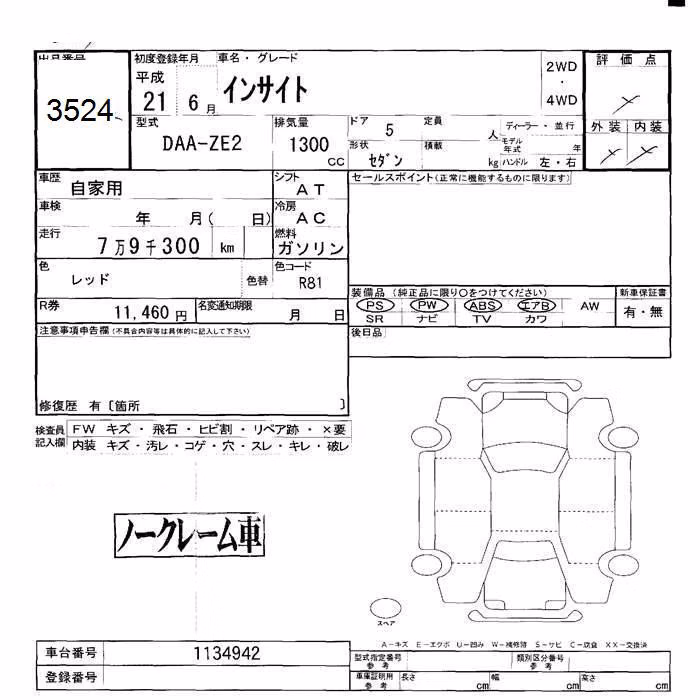 出品番号 初度登録年月 車名・グレード 2WD・4WD 評価点
3524 平成 21 6月 インサイト
型式 排気量 ドア 5 定員 人 ディーラー・並行 外装 内装
DAA-ZE2 1300 CC 形状 セダン 積載 kg モデル年式 年
ハンドル 左・右
車歴 自家用 シフト AT セールスポイント(正常に機能するものに限ります)
車検 年 月( 日) 冷房 AC
走行 7万9千300 km 燃料 ガソリン
色 レッド 色替 色コード R81
装備品 (純正品に限り○をつけてください) 新車保証書
PS PW ABS エアB AW 有・無
SR ナビ TV カワ
R券 11,460円 名変通知期限 月 日
後日品
注意事項申告欄(不具合内容等は具体的に記入して下さい)
修復歴 有〔箇所 〕
検査員記入欄 FW キズ・飛石・ヒビ割・リペア跡・×要
内装 キズ・汚レ・コゲ・穴・スレ・キレ・破レ
ノークレーム車
スペア
A-キズ E-エクボ U-凹み W-補修跡 S-サビ C-腐食 XX-交換済
車台番号 1134942 型式指定番号 参考 類別区分番号 参考
登録番号 車庫証明用 参考 長さ cm 幅 cm 高さ cm